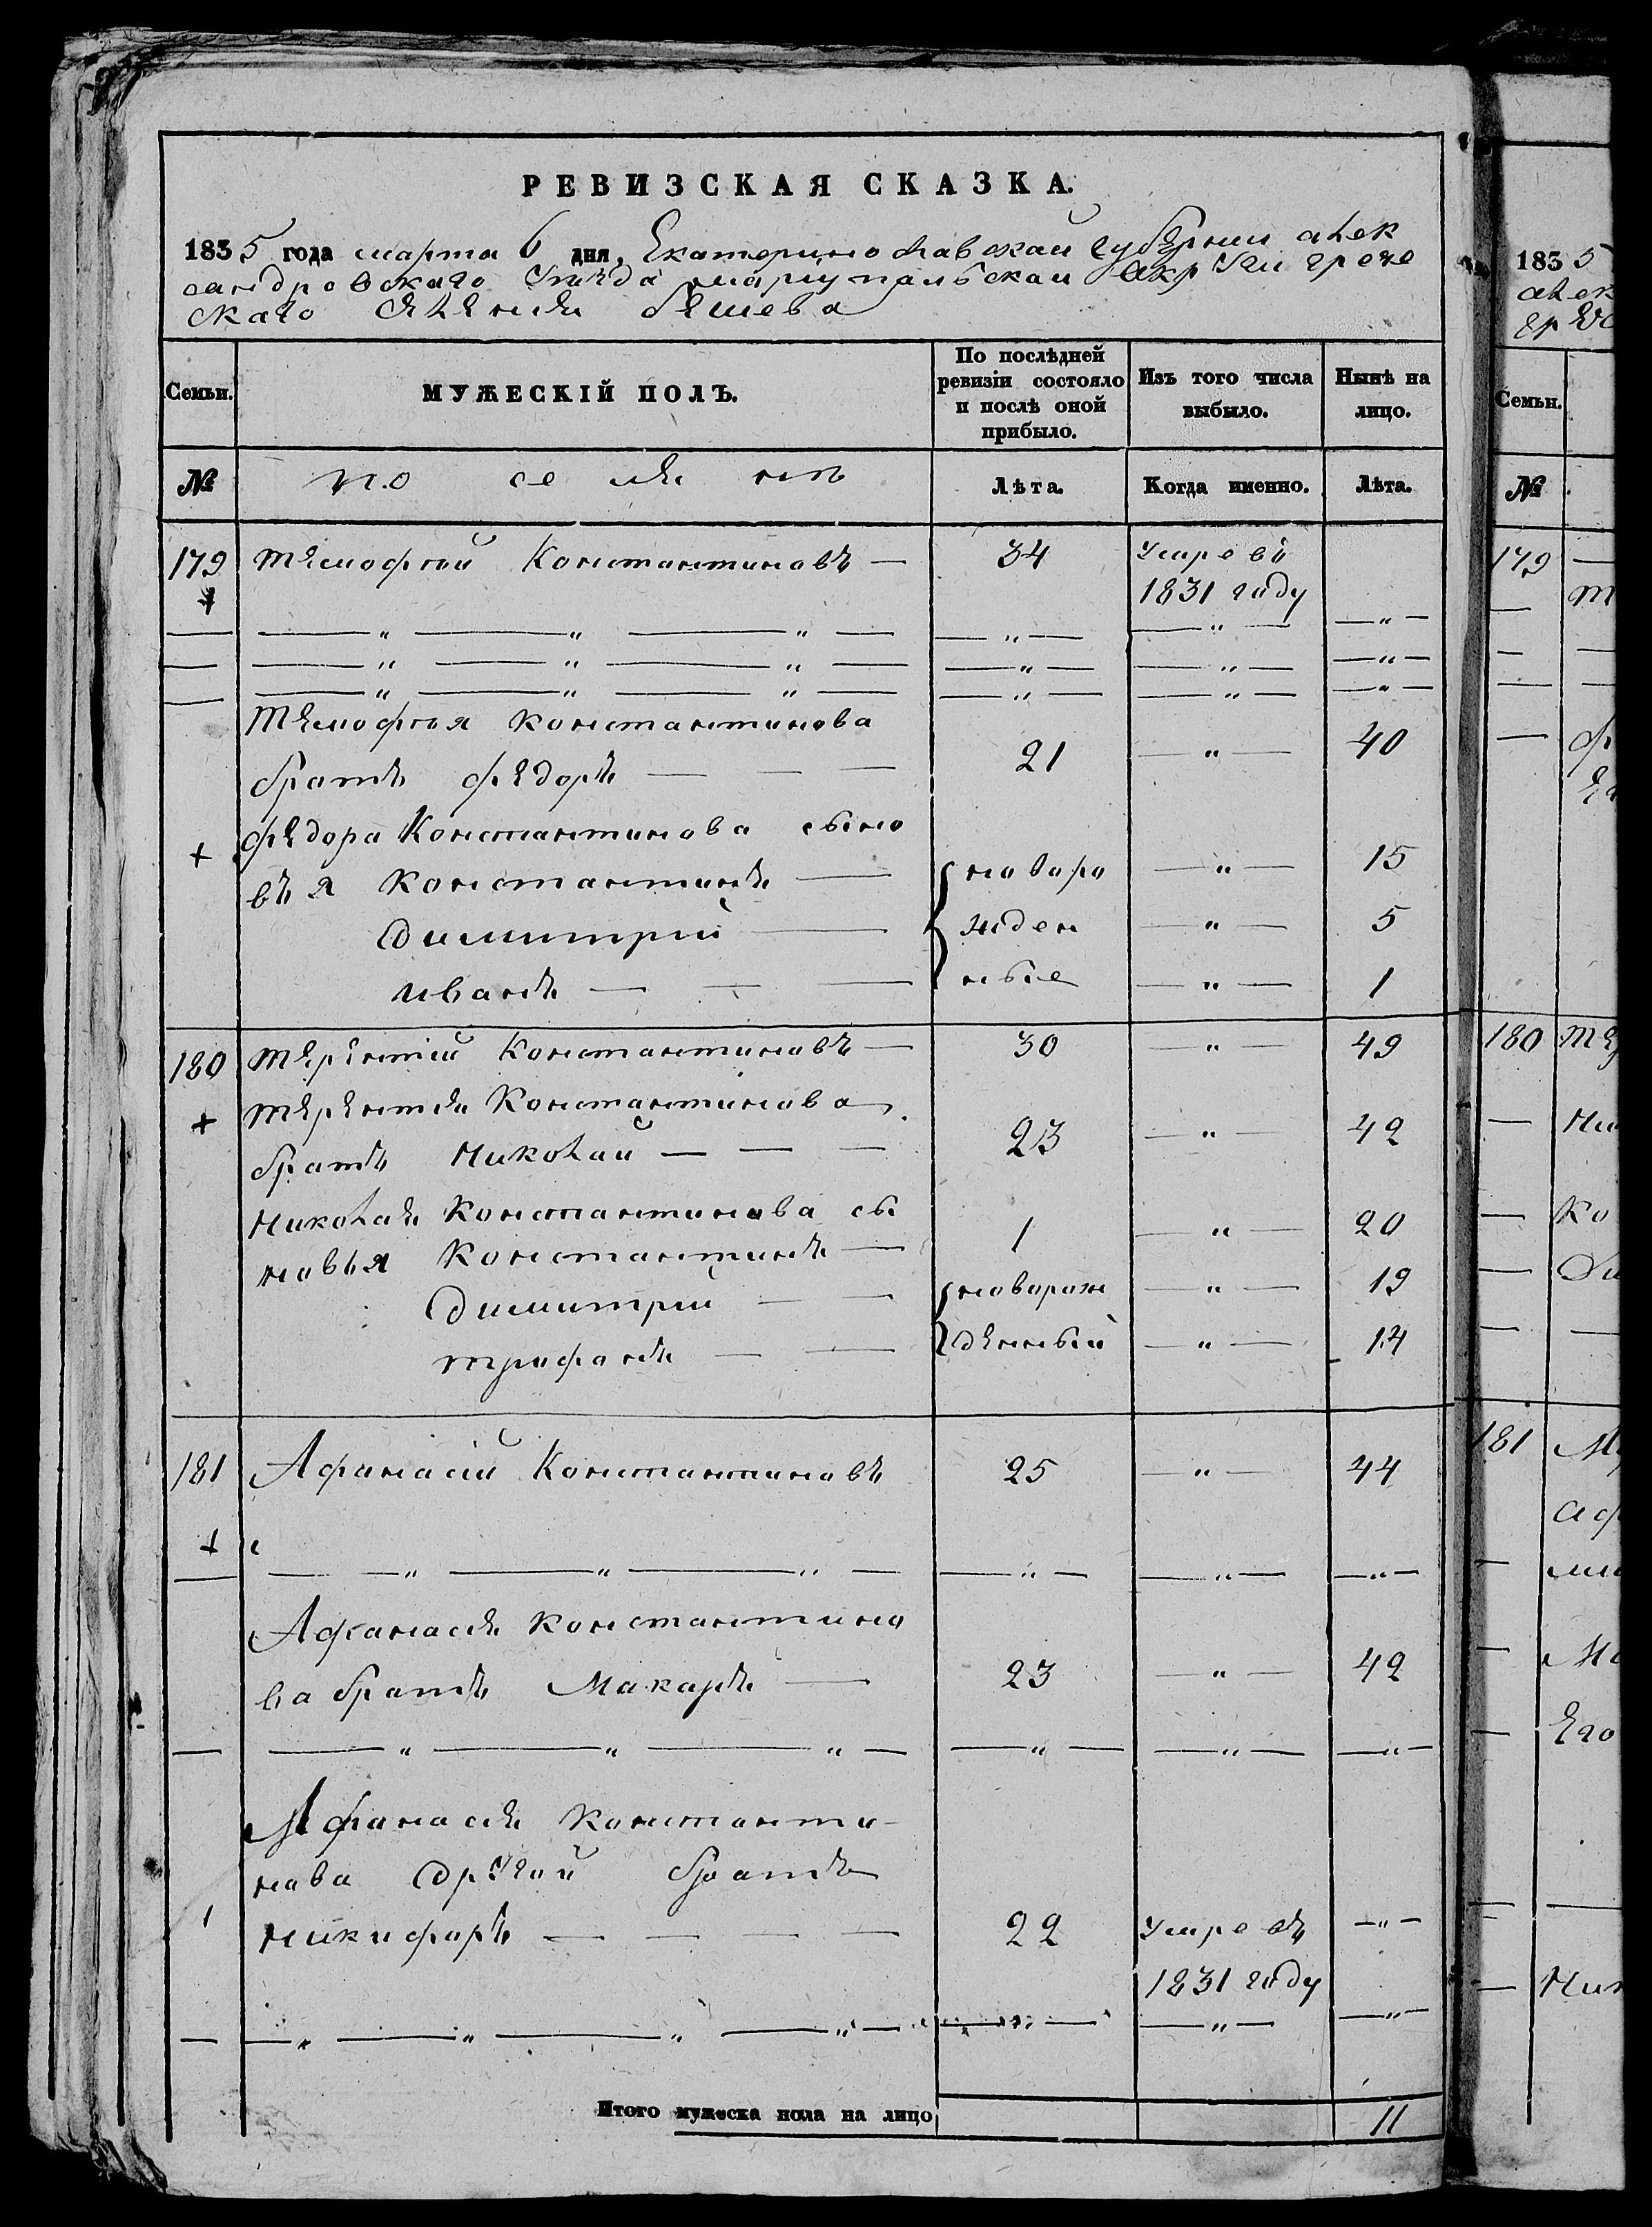 РЕВИЗСКАЯ СКАЗКА.
1835 года марта 6 дня, Екатеринославской губернии алек
сандровскаго уезда мариупольскаи округи грече
скаго селения бешева
Семьи.
МУЖЕСКІЙ ПОЛЪ.
По послѣдней ревизіи состояло и послѣ оной прибыло.
Изъ того числа выбыло.
Нынѣ на лицо.
№
поселянъ
Лѣта.
Когда именно.
Лѣта.
179 тимофей Константиновъ — 34 умре въ
1831 году
— „ — „ — „ — „ — „ — „ —
— „ — „ — „ — „ — „ — „ —
— „ — „ — „ — „ — „ — „ —
Тимофея константинова
братъ федоръ — 21 — „ — 40
федора Константинова сыно
+ вья Константинъ — новоро — „ — 15
димитрий — жден — „ — 5
иванъ — ные — „ — 1
180 терентий Константиновъ — 30 — „ — 49
+ терентия Константинова
братъ Николай — 23 — „ — 42
Николая Константинова сы
новья Константинъ — 1 — „ — 20
димитрий — новорож — „ — 19
трифонъ — денный — „ — 14
181 Афанасій Константиновъ 25 — „ — 44
+
— „ — „ — „ — „ — „ — „ —
Афанасия константино
ва братъ Макаръ — 23 — „ — 42
— „ — „ — „ — „ — „ — „ —
Афанасия константи-
нова другой братъ
никифоръ — 22 умре въ — „ —
1831 году
— „ — „ — „ — „ — „ — „ — „ —
Итого мужеска пола на лицо 11
1835
алек
гре
Семьи.
№
179
180
181